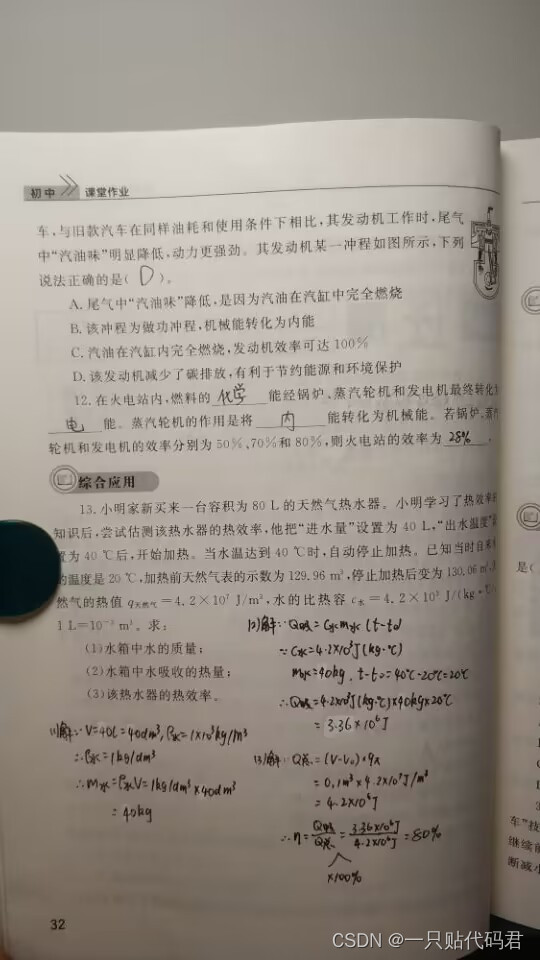 初中 课堂作业
车,与旧款汽车在同样油耗和使用条件下相比,其发动机工作时,尾气
中“汽油味”明显降低,动力更强劲。其发动机某一冲程如图所示,下列
说法正确的是( D )。
A. 尾气中“汽油味”降低,是因为汽油在汽缸中完全燃烧
B. 该冲程为做功冲程,机械能转化为内能
C. 汽油在汽缸内完全燃烧,发动机效率可达 100%
D. 该发动机减少了碳排放,有利于节约能源和环境保护
12. 在火电站内,燃料的 化学 能经锅炉、蒸汽轮机和发电机最终转化为
电 能。蒸汽轮机的作用是将 内 能转化为机械能。若锅炉、蒸汽
轮机和发电机的效率分别为 50%、70%和 80%,则火电站的效率为 28% 。
综合应用
13. 小明家新买来一台容积为 80 L 的天然气热水器。小明学习了热效率的
知识后,尝试估测该热水器的热效率,他把“进水量”设置为 40 L,“出水温度”
置为 40 ℃后,开始加热。当水温达到 40 ℃时,自动停止加热。已知当时自来
的温度是 20 ℃,加热前天然气表的示数为 129.96 m³,停止加热后变为 130.06 m³,
然气的热值 q天然气=4.2×10⁷ J/m³,水的比热容 c水=4.2×10³ J/(kg·℃)
1 L=10⁻³ m³。求:
(1)水箱中水的质量;
(2)水箱中水吸收的热量;
(3)该热水器的热效率。
(1)解:∵V=40L=40dm³,ρ水=1×10³kg/m³
∴ρ水=1kg/dm³
∴m水=ρ水V=1kg/dm³×40dm³
=40kg
(2)解:∵Q吸=C水m水(t-t₀)
∵C水=4.2×10³J/(kg·℃)
m水=40kg, t-t₀=40℃-20℃=20℃
∴Q吸=4.2×10³J/(kg·℃)×40kg×20℃
=3.36×10⁶J
(3)解:Q总=(V-V₀)·q天
=0.1m³×4.2×10⁷J/m³
=4.2×10⁶J
∴η=Q吸/Q总=3.36×10⁶J/4.2×10⁶J=80%
×100%
32
CSDN @一只贴代码君
是(
车”技
继续前
断减小